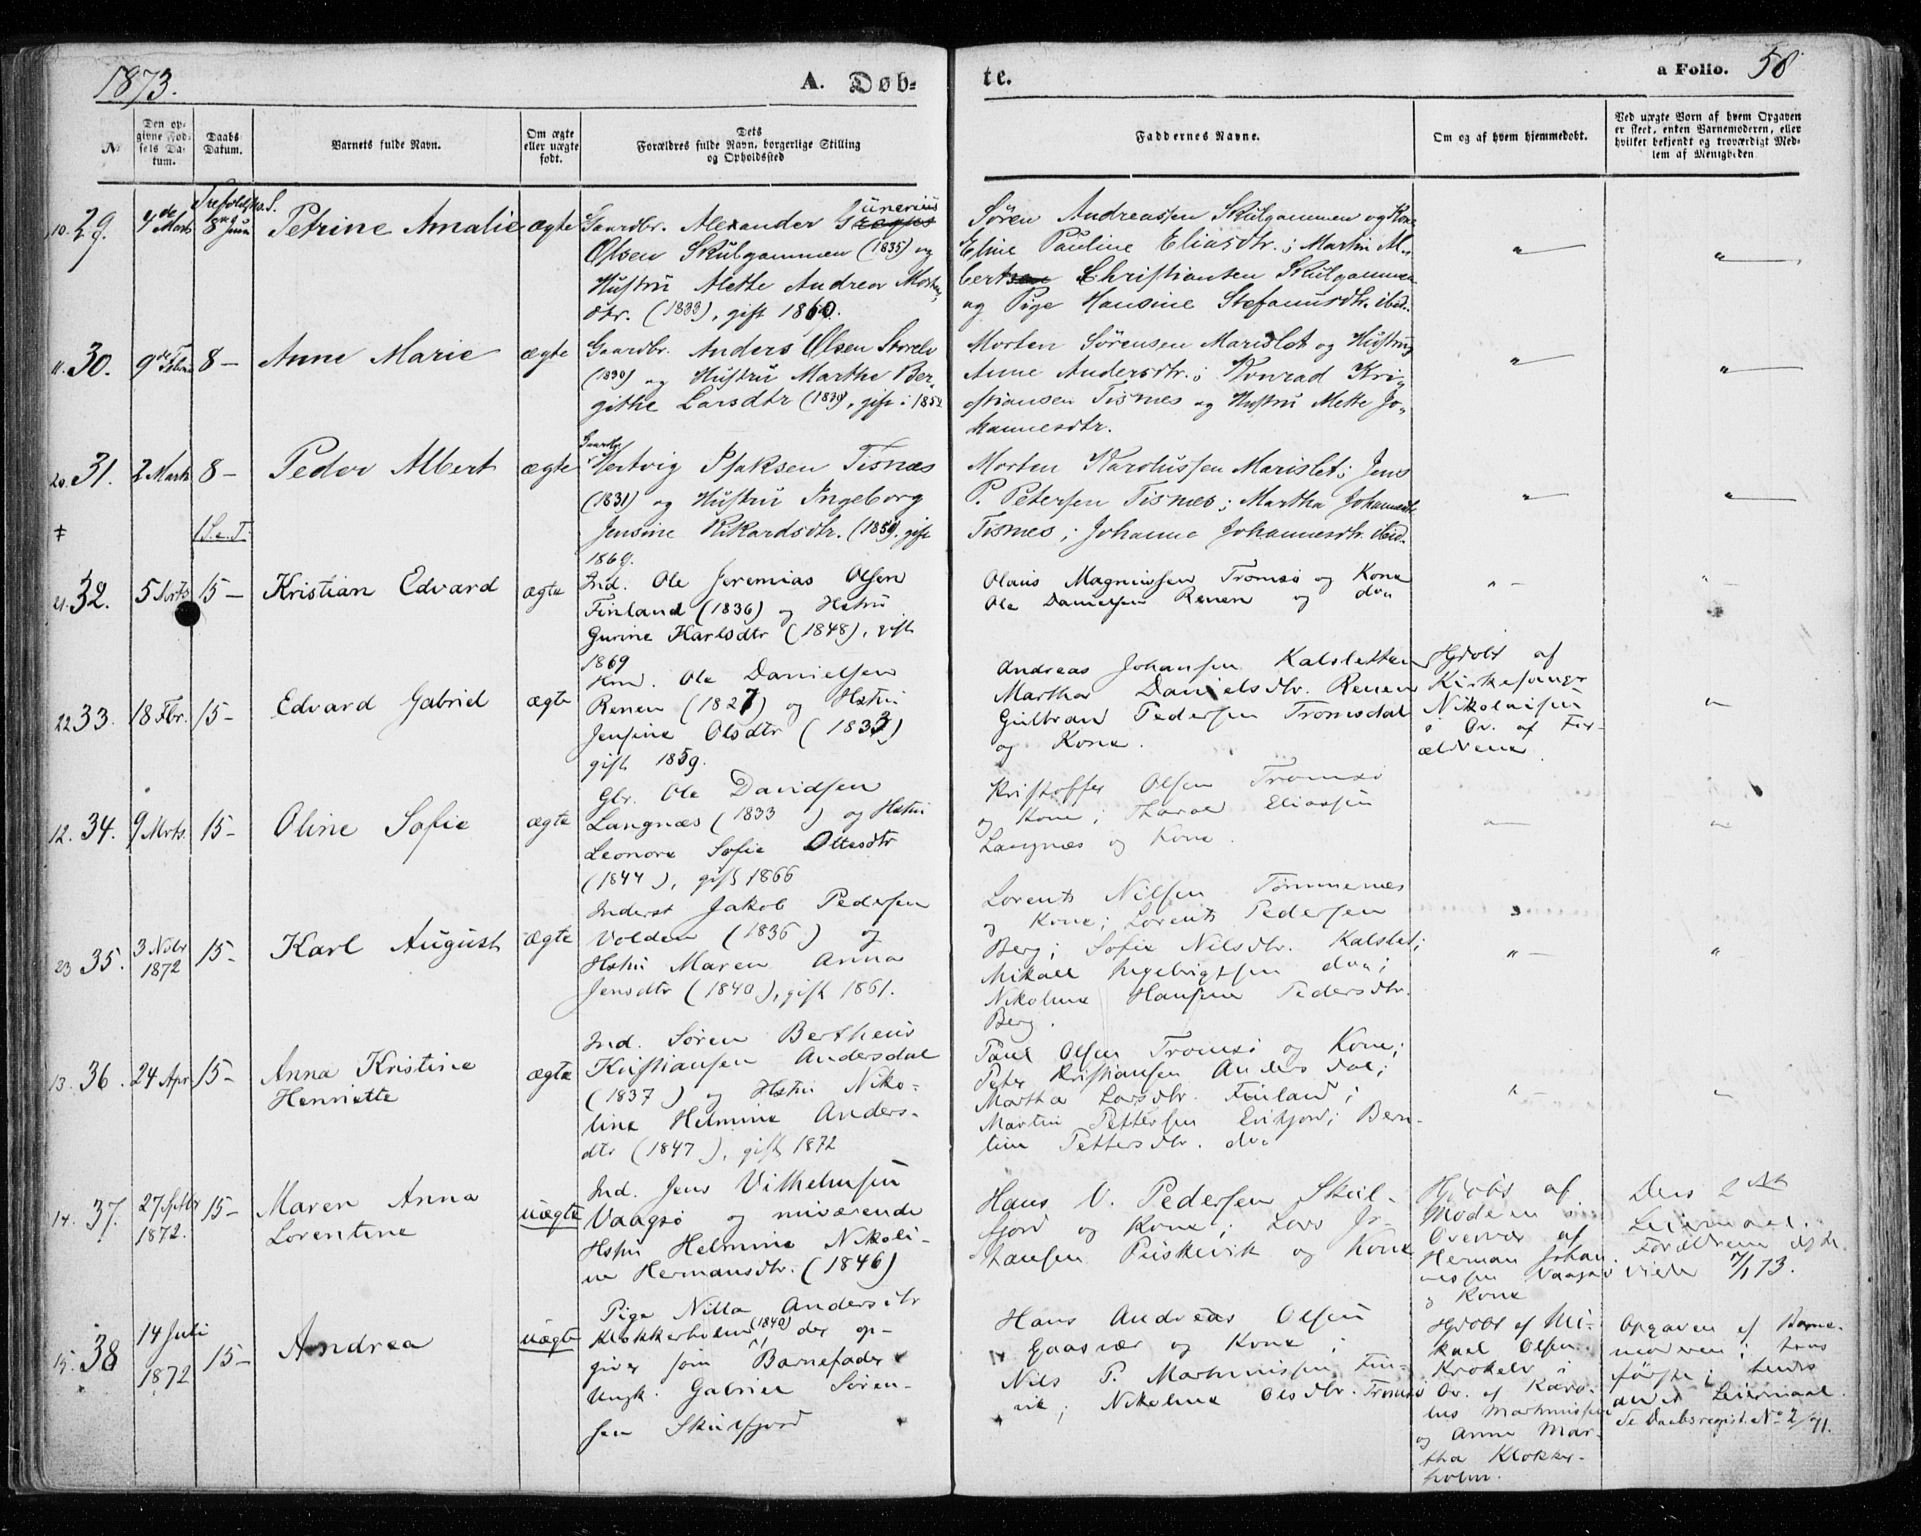 1873.
A. Døb-
te.
a Folio. 58
№
Den op-
givne Fød-
sels Da-
tum.
Daabs
Datum.
Barnets fulde Navn.
Om ægte
eller uægte
født.
Dets
Forældres fulde Navn, borgerlige Stilling
og Opholdssted
Faddernes Navne.
Om og af hvem hjemmedøbt.
Ved uægte Børn af hvem Opgaven
er skeet, enten Barnemoderen, eller
hvilket bekjendt og troværdigt Med-
lem af Menigheden
10. 29.
4de Marts
8 Juni
Petrine Amalie
ægte
Gaardbr. Alexander Gunerius
Olsen Skulgammen (1835) og
Hustru Mette Andrea Morten-
dtr. (1833), gift 1860.
Søren Andreassen Skulgammen og Kone
Eline Pauline Eliasdtr.; Martin Al-
bert Christiansen Skulgammen
og Pige Hansine Stefanusdtr. ibid.
11. 30.
9de Febru
8 –
Anne Marie
ægte
Gaardbr. Anders Olsen Storelv
(1830) og Hustru Marthe Ber-
githe Larsdtr (1829), gift i 1852
Morten Sørensen Marislet og Hustru
Anne Andersdtr.; Konrad Kri-
stiansen Tisnes og Hustru Mette Jo-
hannesdtr.
20. 31.
2 Marts
8 –
Peder Albert
ægte
Gaardbr
Hertvig Isaksen Tisnæs
(1831) og Hustru Ingeborg
Jensine Rikardsdtr. (1850), gift
1869.
Morten Karolussen Marislet; Jens
P. Petersen Tisnes; Martha Johannesdt.
Tisnes; Johanna Johannesdtr. ibid.
1 S. e. T.
21. 32.
5 Mrts
15 –
Kristian Edvard
ægte
Ind. Ole Jeremias Olsen
Finland (1836) og Hstru
Gurine Karlsdtr (1848), gift
1869
Olaus Magnussen Tromsø og Kone
Ole Danielsen Renen og do
22 33.
18 Fbr.
15 –
Edvard Gabriel
ægte
Ole Danielsen
Renen (1827) og Hstru
Jensine Olsdtr (1833)
gift 1859.
Andreas Johansen Kalsletten
Martha Danielsdtr. Renen
Gulbran Pedersen Tromsdal
og Kone.
Hjdøbt af
Kirkesanger
Nikolaisen
i Ov. af For-
ældrene
12. 34.
9 Mrts.
15 –
Oline Sofie
ægte
Gbr. Ole Davidsen
Langnæs (1833) og Hstru
Leonore Sofie Ottesdtr
(1844), gift 1866
Kristoffer Olsen Tromsø
og Kone; Eliassen
Langnæs og Kone.
23 35.
3 Nvbr
1872
15 –
Karl August
ægte
Inderst Jakob Pedersen
Volden (1836) og
Hstru Maren Anna
Jensdtr (1840), gift 1861.
Lorents Nilsen Tømmernes
og Kone; Lorents Pedersen
Berg; Sofie Nilsdtr. Kalslet;
Mikael Ingebrigtsen do;
Nikoline Hansine Pedersdtr.
Berg.
13. 36.
24 Apr
15 –
Anna Kristine
Henriette
ægte
Ind. Søren Bertheus
Kristiansen Andersdal
(1837) og Hstru Niko-
line Helmine Anders-
dtr (1847), gift 1872
Paul Olsen Tromsø og Kone;
Peter Kristiansen Andersdal;
Martha Larsdtr. Finland;
Martin Pettersen; Ber-
line Pettersdtr. do
14. 37.
27 Sptbr
1872.
15 –
Maren Anna
Lorentine
uægte
Ind. Jens Vilhelmsen
Vaagsø og nuværende
Hstru Helmine Nikoli-
ne Hermansdtr. (1846)
Hans V. Pedersen Skul-
fjord og Kone; Lars Jo-
hansen og Kone
Hjdøbt af
Moderen i
Overvær af
Herman Johan-
nessen Vaagsø
og Kone
Dens 2det
Leiermaal.
Forældrene
viede 7/1 73.
15. 38
14 Juli
1872
15 –
Andrea
uægte
Pige Nilla Andersdtr
Klokkerholmen (1840), der op-
giver som Barnefader
Ungk. Gabriel Søren-
sen Skulsfjord
Hans Andreas Olsen
Gaasvær og Kone;
Nils P. Martinussen Fin-
vik; Nikoline Olsdtr. Tromsø
Hjdøbt af Mi-
kael Olsen
Krokelv i
Ov. af Karo-
lus Martinussen
og Anne Mar-
tha Klokker-
holm.
Opgaven af Barne-
moderen; hans
første, hendes
andet Leiermaal.
Se Daabsregist. No 2/71.